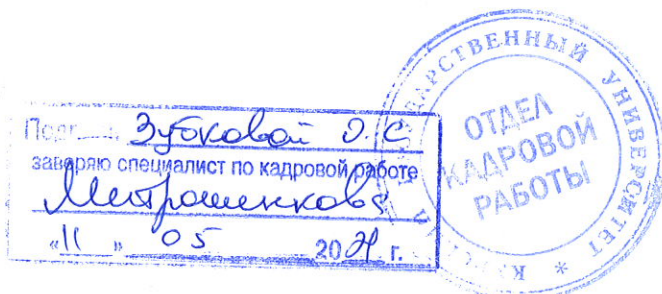 Зубковой О. С
заверяю специалист по кадровой работе
Митрошенкова
"11" 05 2021 г.
ГОСУДАРСТВЕННЫЙ УНИВЕРСИТЕТ
ОТДЕЛ
КАДРОВОЙ
РАБОТЫ